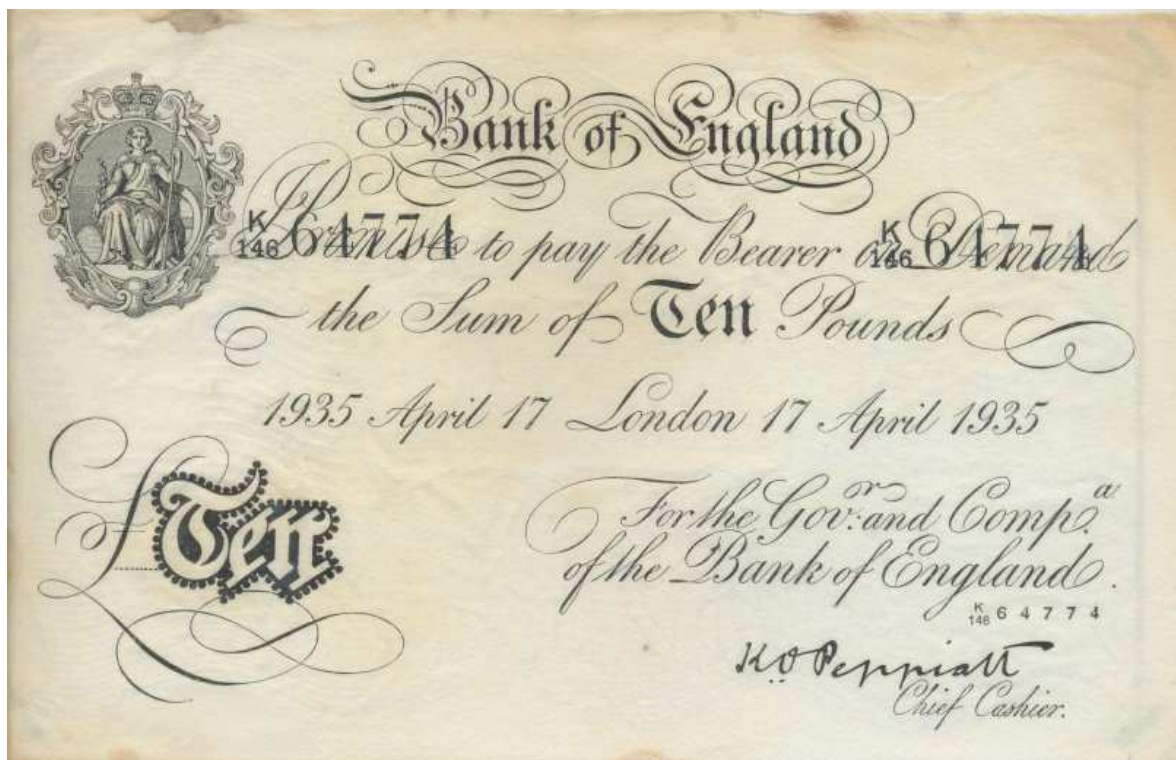 Bank of England
K
146 64774 I Promise to pay the Bearer on Demand K
146 64774
the Sum of Ten Pounds
1935 April 17 London 17 April 1935
£Ten
For the Gov.or and Comp.a
of the Bank of England.
K
146 64774
K.O Peppiatt
Chief Cashier.